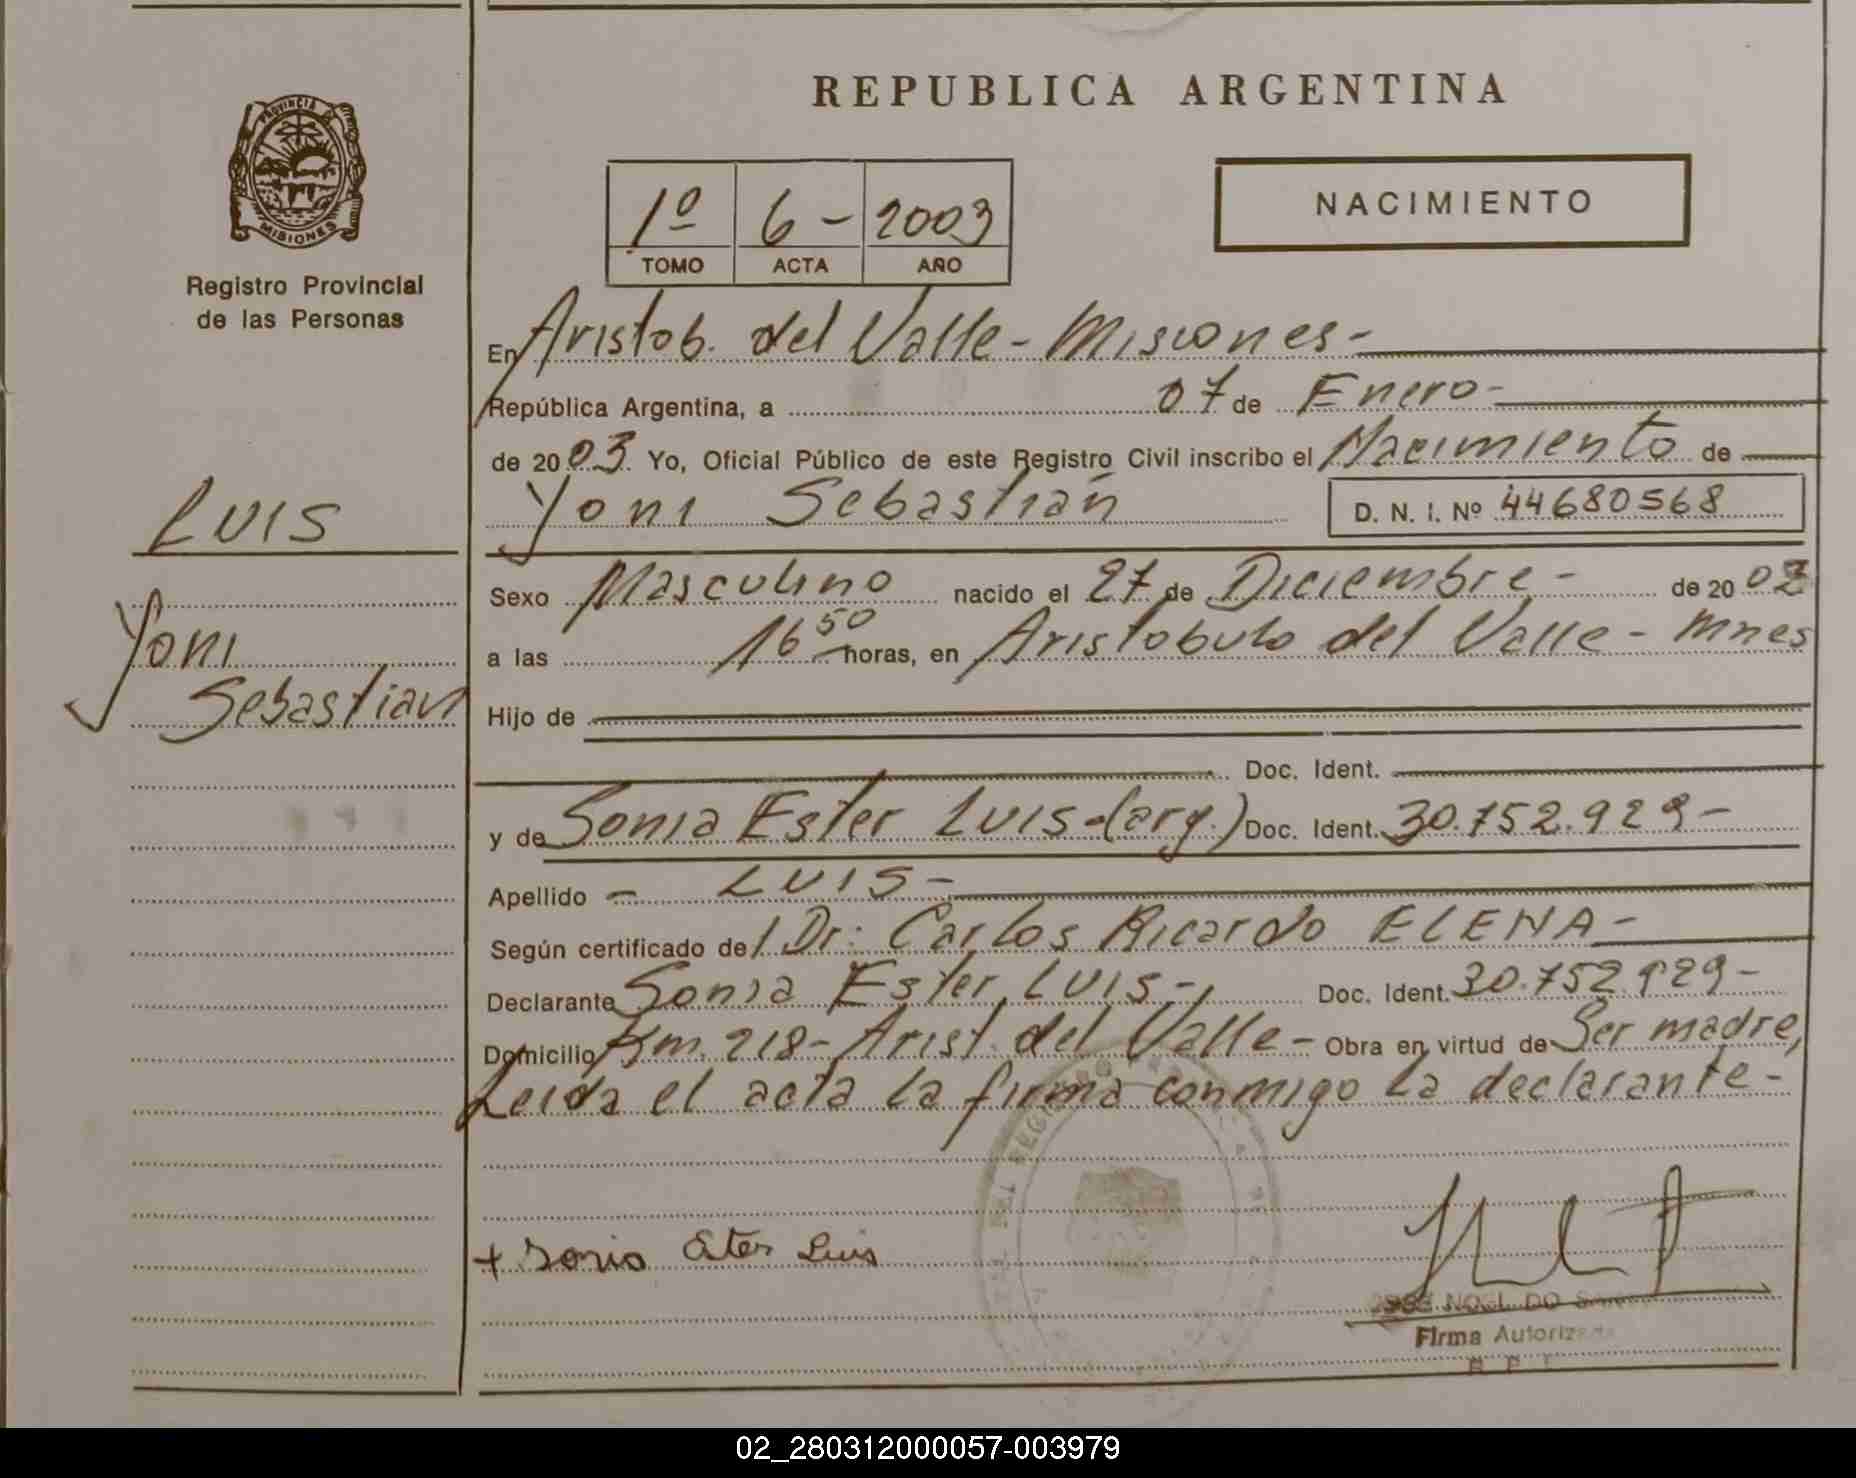 REPUBLICA ARGENTINA
PROVINCIA DE
MISIONES
Registro Provincial
de las Personas
1º 6- 2003
TOMO ACTA AÑO
NACIMIENTO
En Aristob. del Valle - Misiones -
República Argentina, a 07 de Enero -
de 2003 Yo, Oficial Público de este Registro Civil inscribo el Nacimiento de
Yoni Sebastián D. N. I. Nº 44680568
LUIS
Yoni
Sebastian
Sexo Masculino nacido el 27 de Diciembre - de 2002
a las 16 50 horas, en Aristobulo del Valle - Mnes
Hijo de
Doc. Ident.
y de Sonia Ester LUIS - (arg.) Doc. Ident. 30.752.929 -
Apellido - LUIS -
Según certificado del Dr: Carlos Ricardo ELENA -
Declarante Sonia Ester LUIS - Doc. Ident. 30.752.929 -
Domicilio Km. 218 - Arist. del Valle - Obra en virtud de Ser madre,
Leida el acta la firma conmigo la declarante -
+ Sonia Ester Luis
Firma Autorizada
02_280312000057-003979